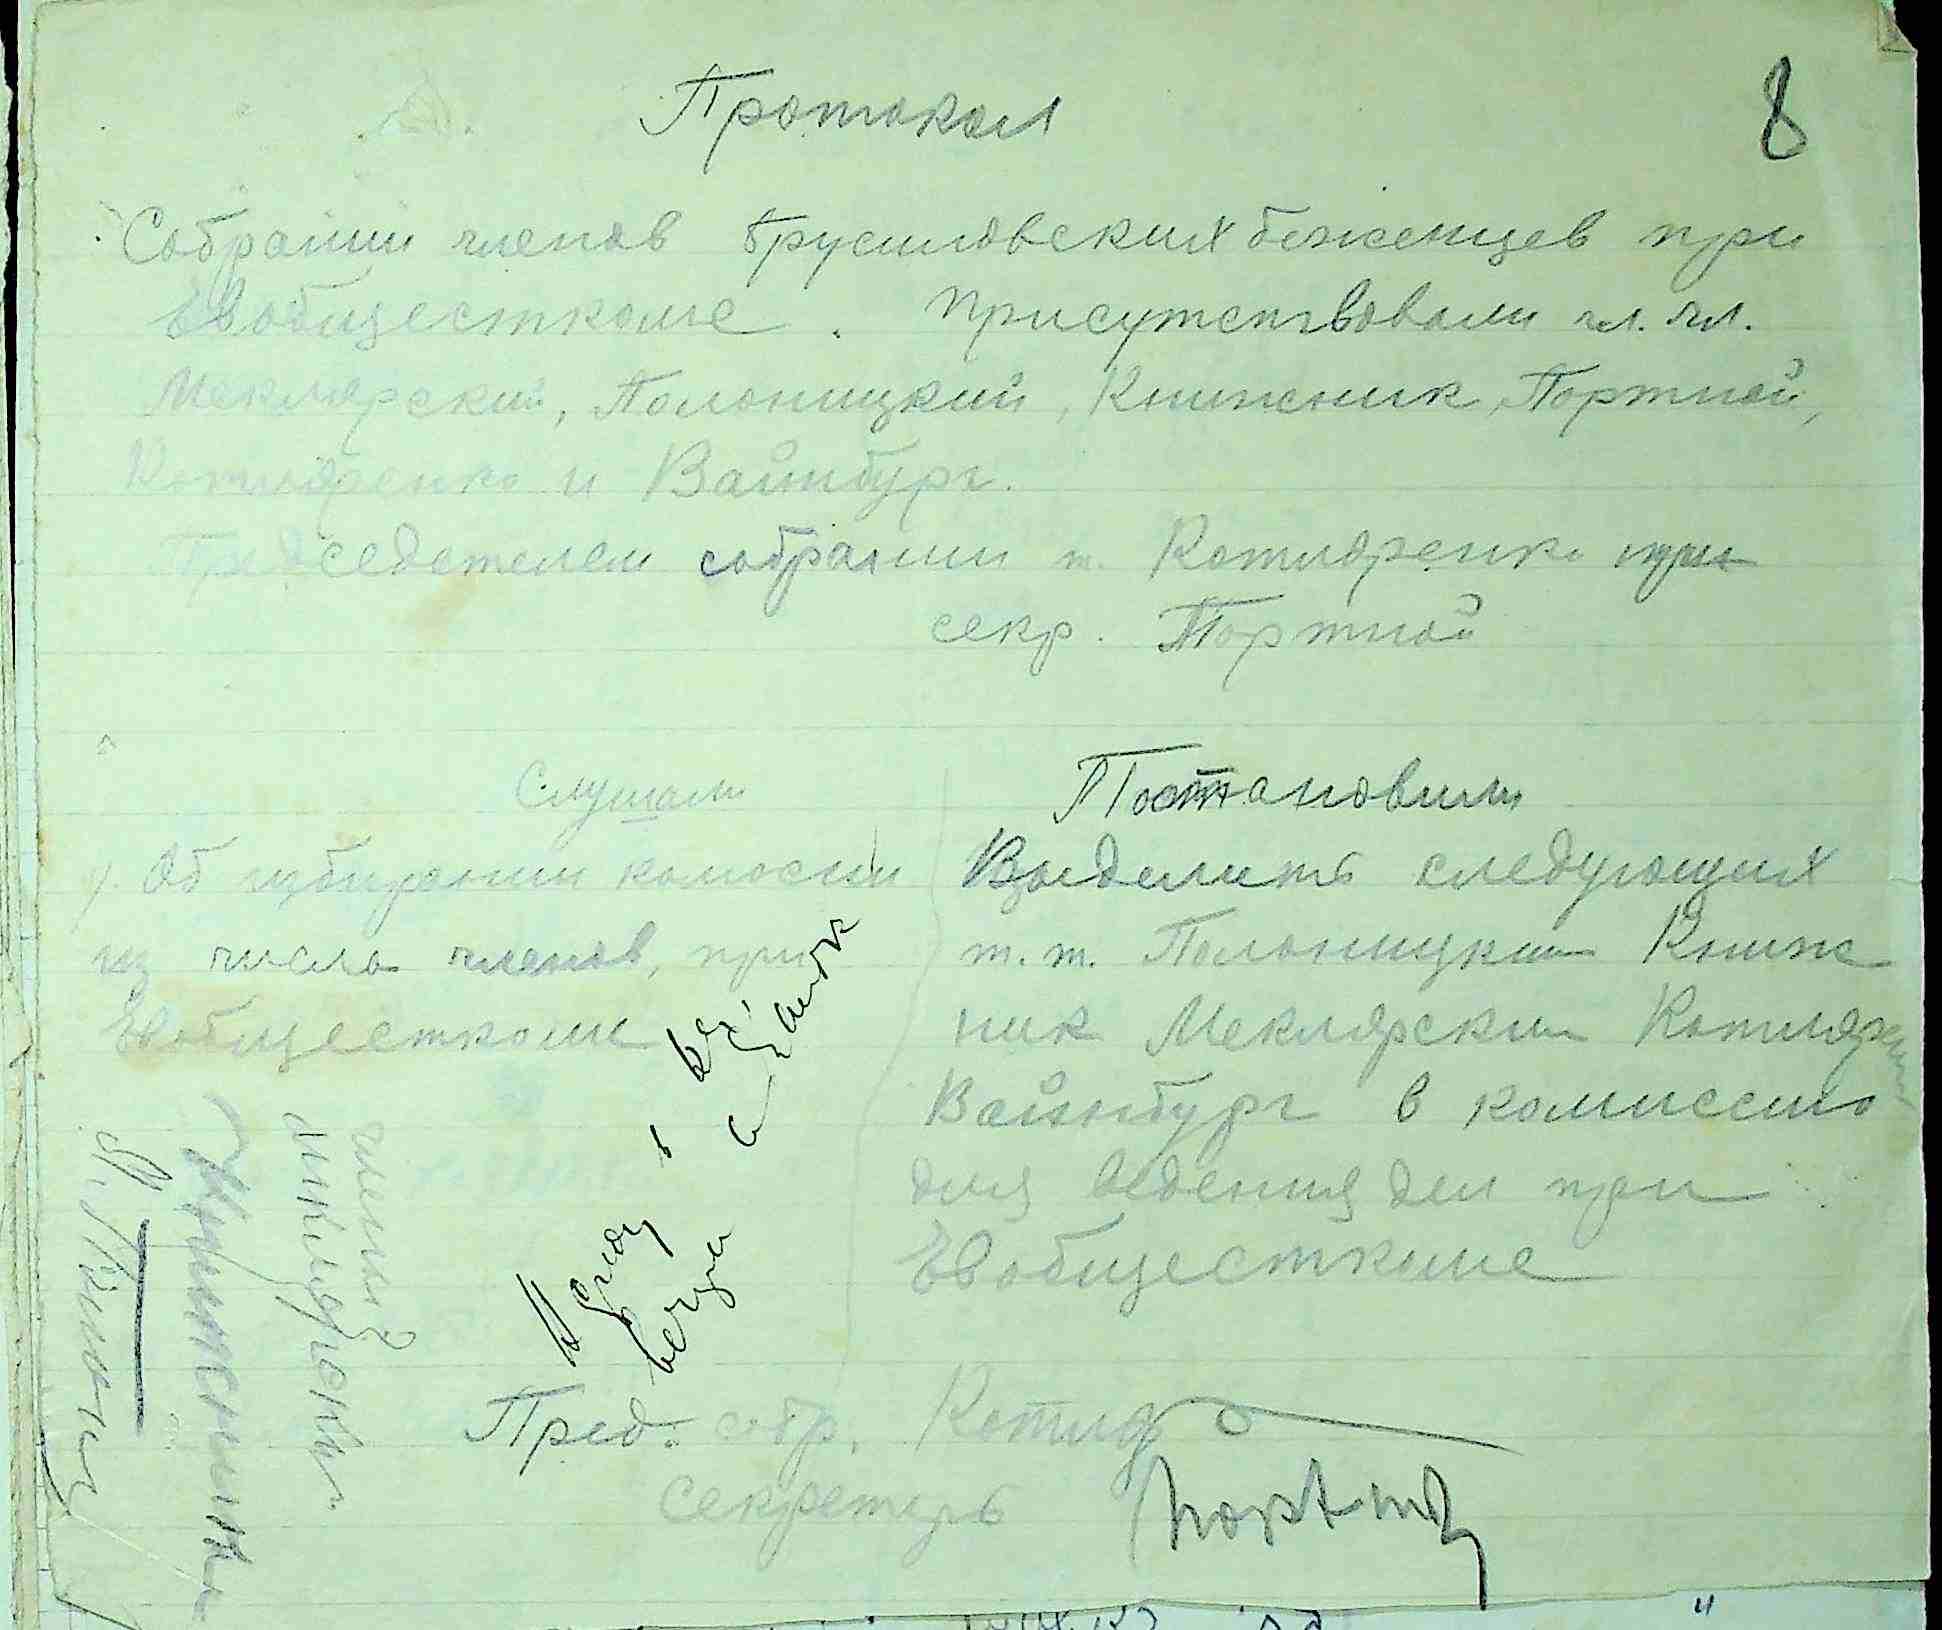 Протокол
8
Собрании членов брусиловских беженцев при
Евобщесткоме. Присутствовали чл. чл.
Меклярский, Полоницкий, Книжник, Портной,
Котляренко и Вайнбург.
Председателем собрании т. Котляренко при
секр. Портной
Слушали
1. Об избирании комосии
из числа членов, при
Евобщесткоме
Постановили
Выделить следующих
т. т. Полоницкий Книж
ник Меклярский Котляренко
Вайнбург в комиссию
для ведения дел при
Евобщесткоме
Пред. собр. Котляр
Секретарь Портной
члены
Меклярский
Книжник